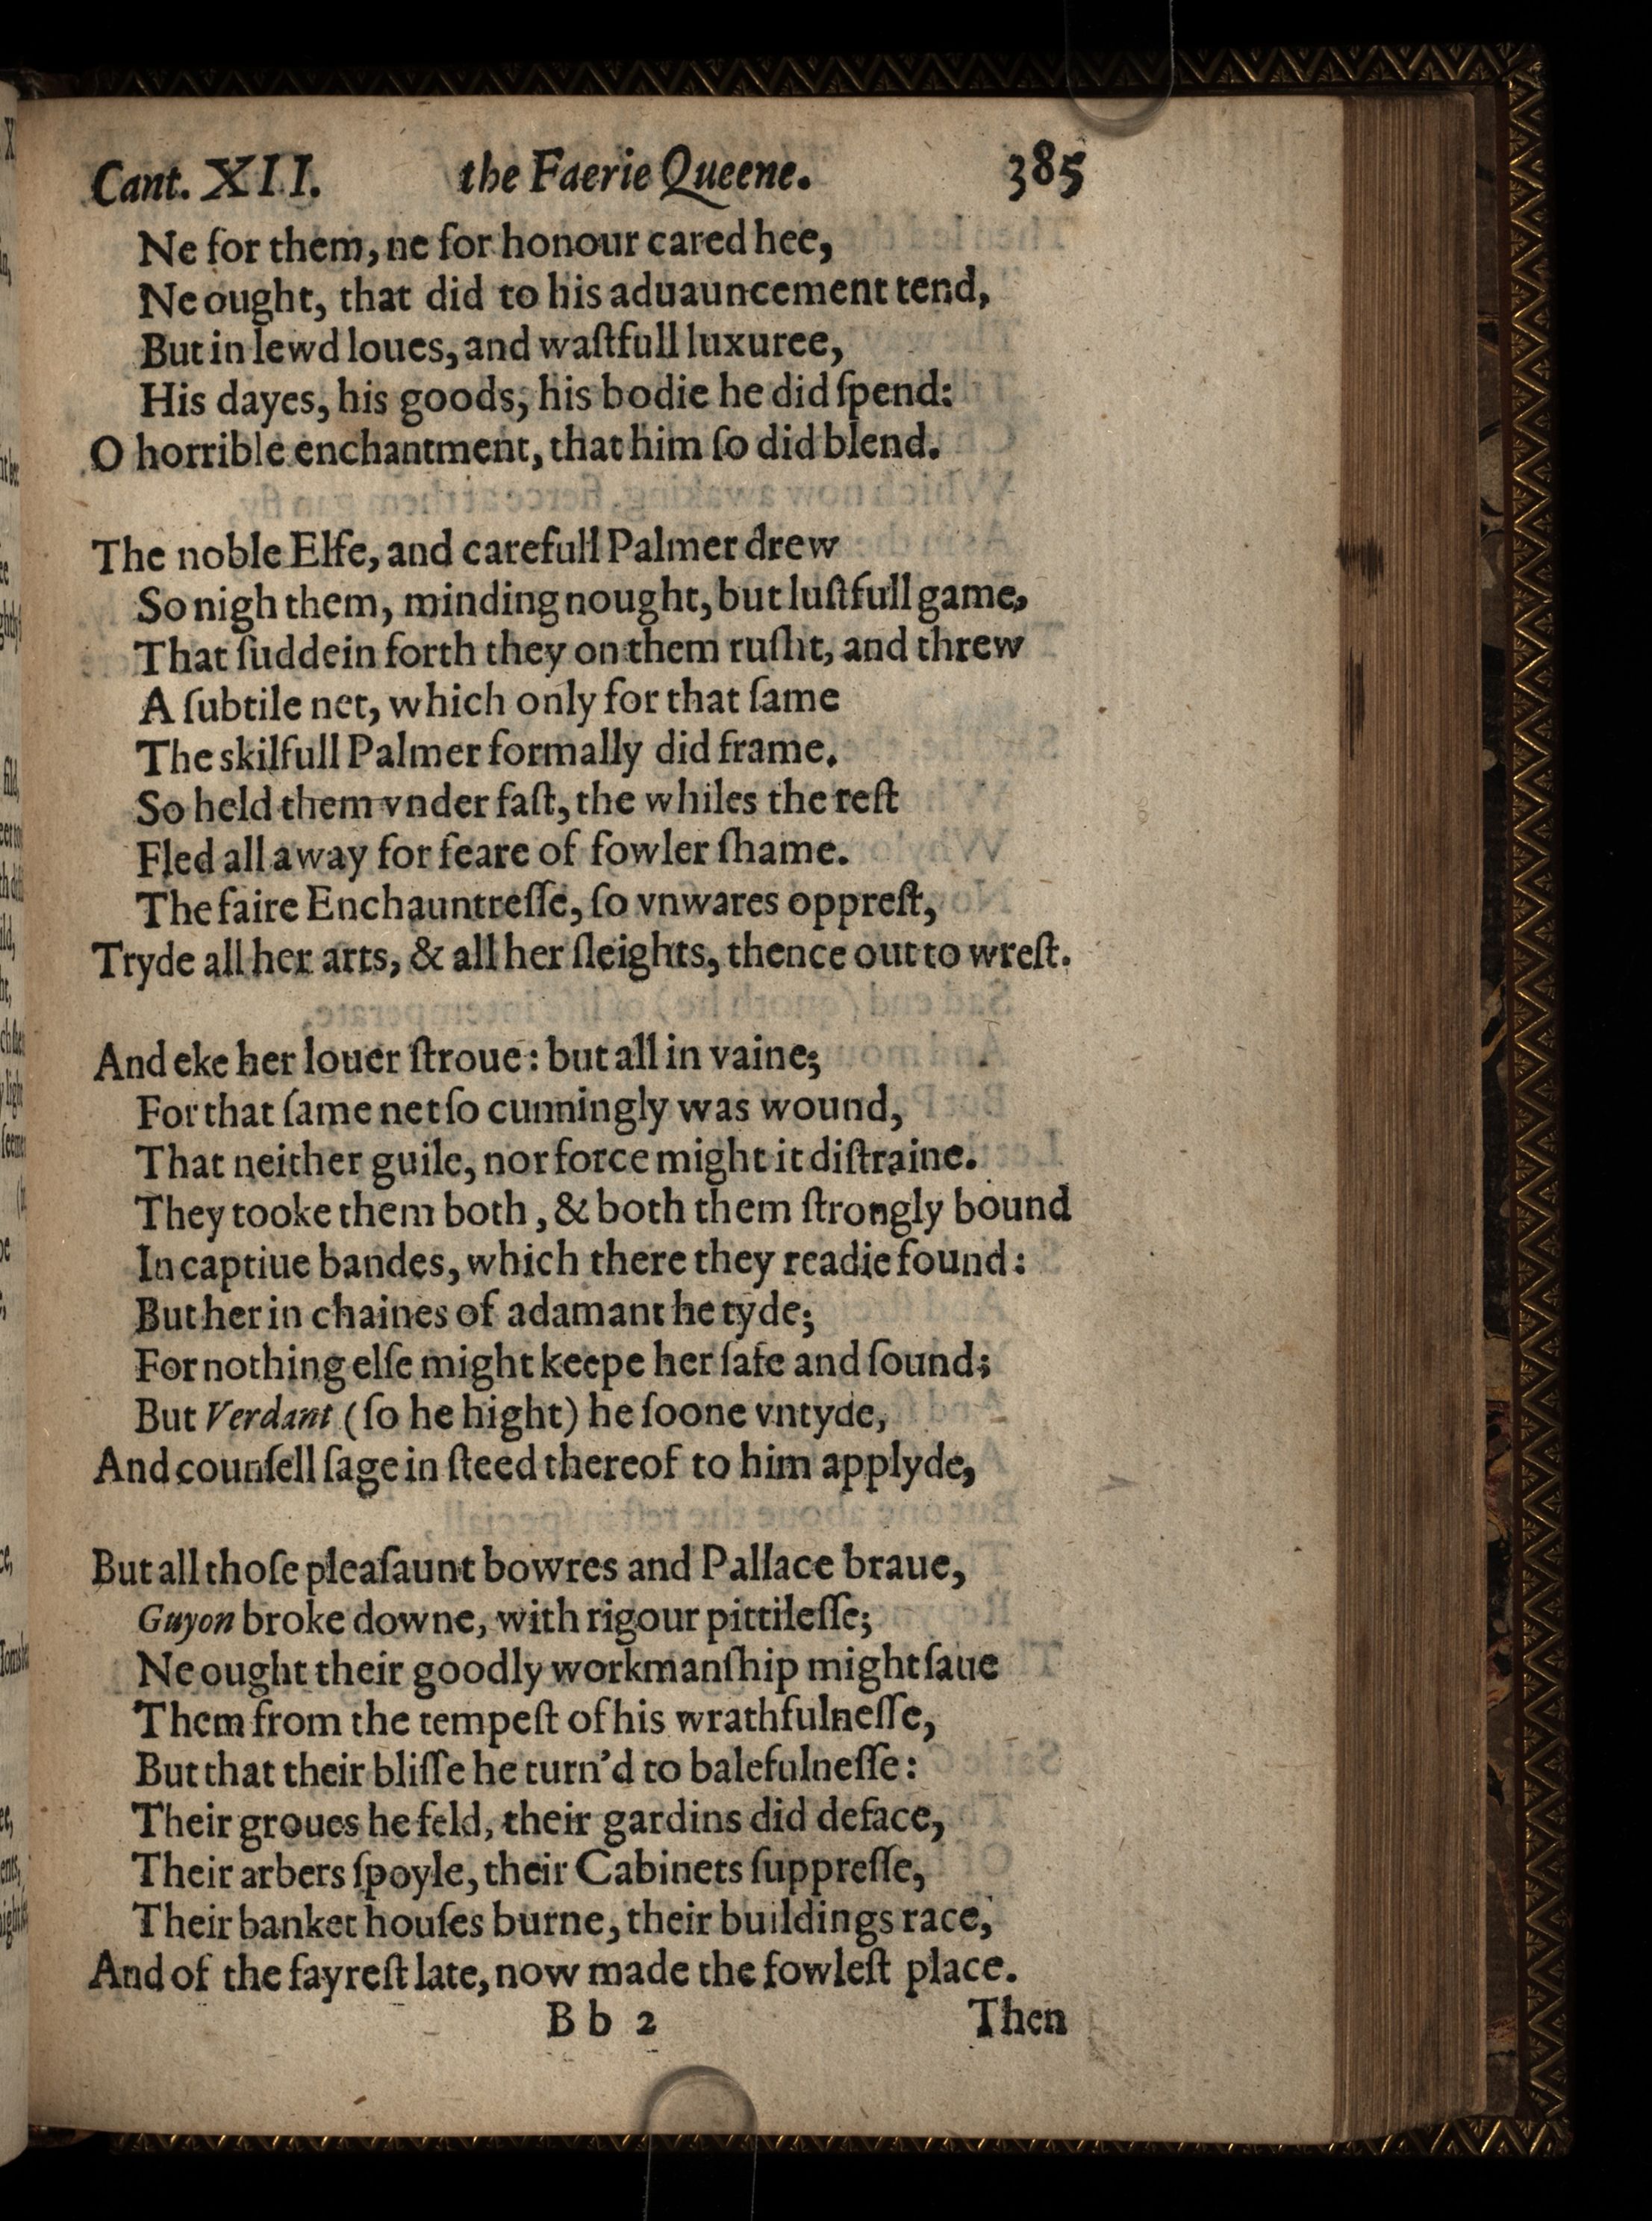 Cant. XII. the Faerie Queene. 385
Ne for them, ne for honour cared hee,
Ne ought, that did to his aduauncement tend,
But in lewd loues, and waſtfull luxuree,
His dayes, his goods, his bodie he did ſpend:
O horrible enchantment, that him ſo did blend.
The noble Elfe, and carefull Palmer drew
So nigh them, minding nought, but luſtfull game,
That ſuddein forth they on them ruſht, and threw
A ſubtile net, which only for that ſame
The skilfull Palmer formally did frame.
So held them vnder faſt, the whiles the reſt
Fled all away for feare of fowler ſhame.
The faire Enchauntreſſe, ſo vnwares oppreſt,
Tryde all her arts, & all her ſleights, thence out to wreſt.
And eke her louer ſtroue: but all in vaine;
For that ſame net ſo cunningly was wound,
That neither guile, nor force might it diſtraine.
They tooke them both, & both them ſtrongly bound
In captiue bandes, which there they readie found:
But her in chaines of adamant he tyde;
For nothing elſe might keepe her ſafe and ſound;
But Verdant (ſo he hight) he ſoone vntyde,
And counſell ſage in ſteed thereof to him applyde,
But all thoſe pleaſaunt bowres and Pallace braue,
Guyon broke downe, with rigour pittileſſe;
Ne ought their goodly workmanſhip might ſaue
Them from the tempeſt of his wrathfulneſſe,
But that their bliſſe he turn'd to balefulneſſe:
Their groues he feld, their gardins did deface,
Their arbers ſpoyle, their Cabinets ſuppreſſe,
Their banket houſes burne, their buildings race,
And of the fayreſt late, now made the fowleſt place.
B b 2 Then